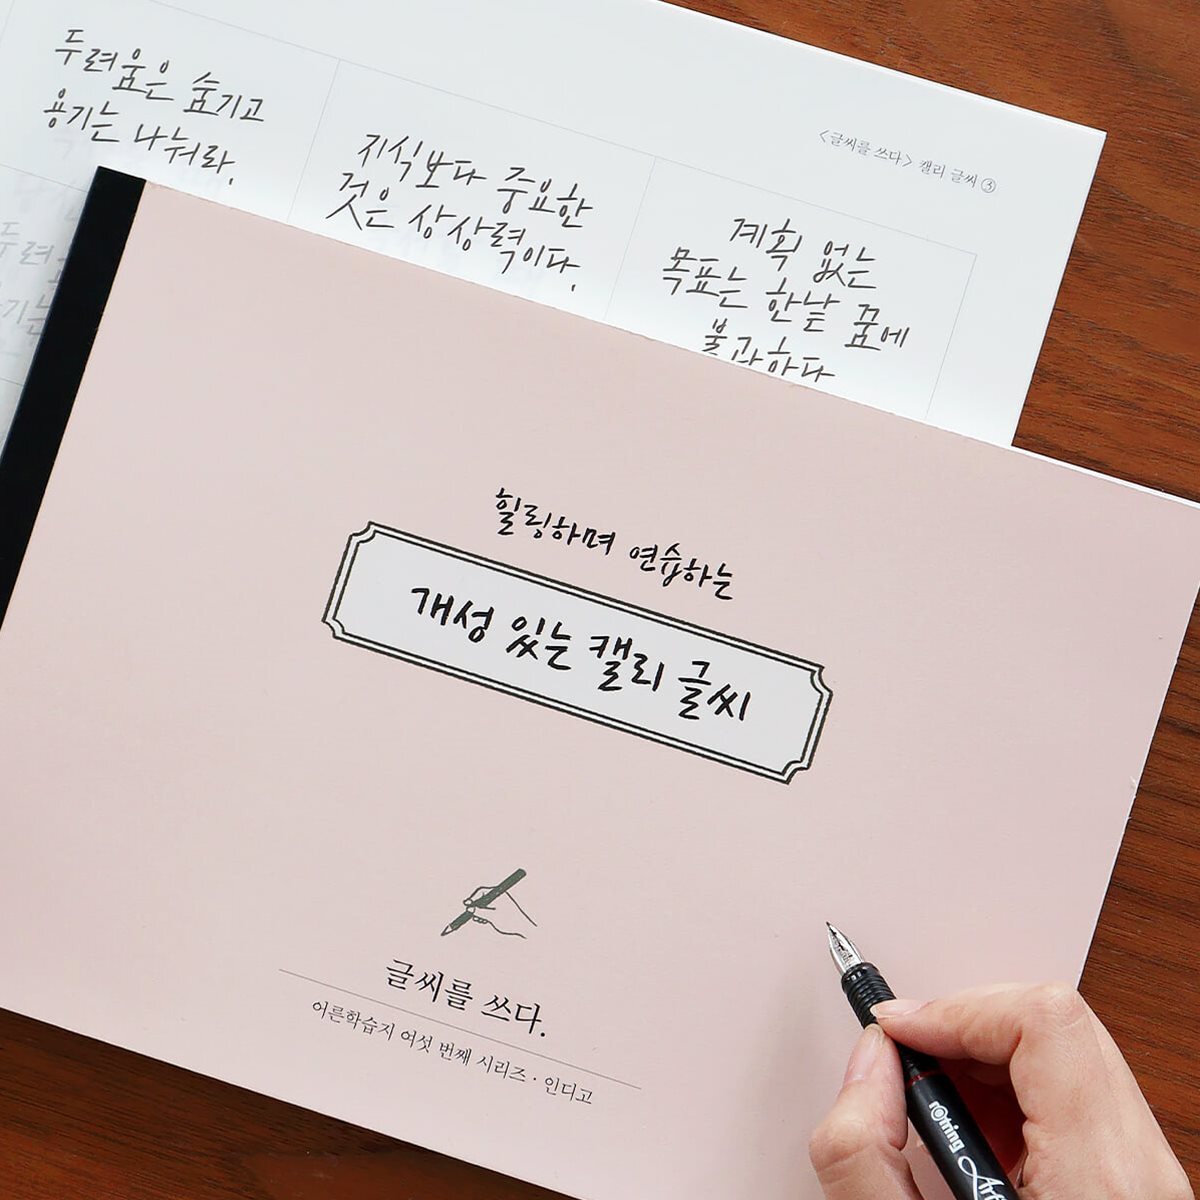 <글씨를 쓰다> 캘리 글씨 ③
두려움은 숨기고
용기는 나눠라.
지식보다 중요한
것은 상상력이다.
계획 없는
목표는 한낱 꿈에
불과하다
두려
기는
힐링하며 연습하는
개성 있는 캘리 글씨
글씨를 쓰다.
어른학습지 여섯 번째 시리즈 · 인디고
rOtring Art